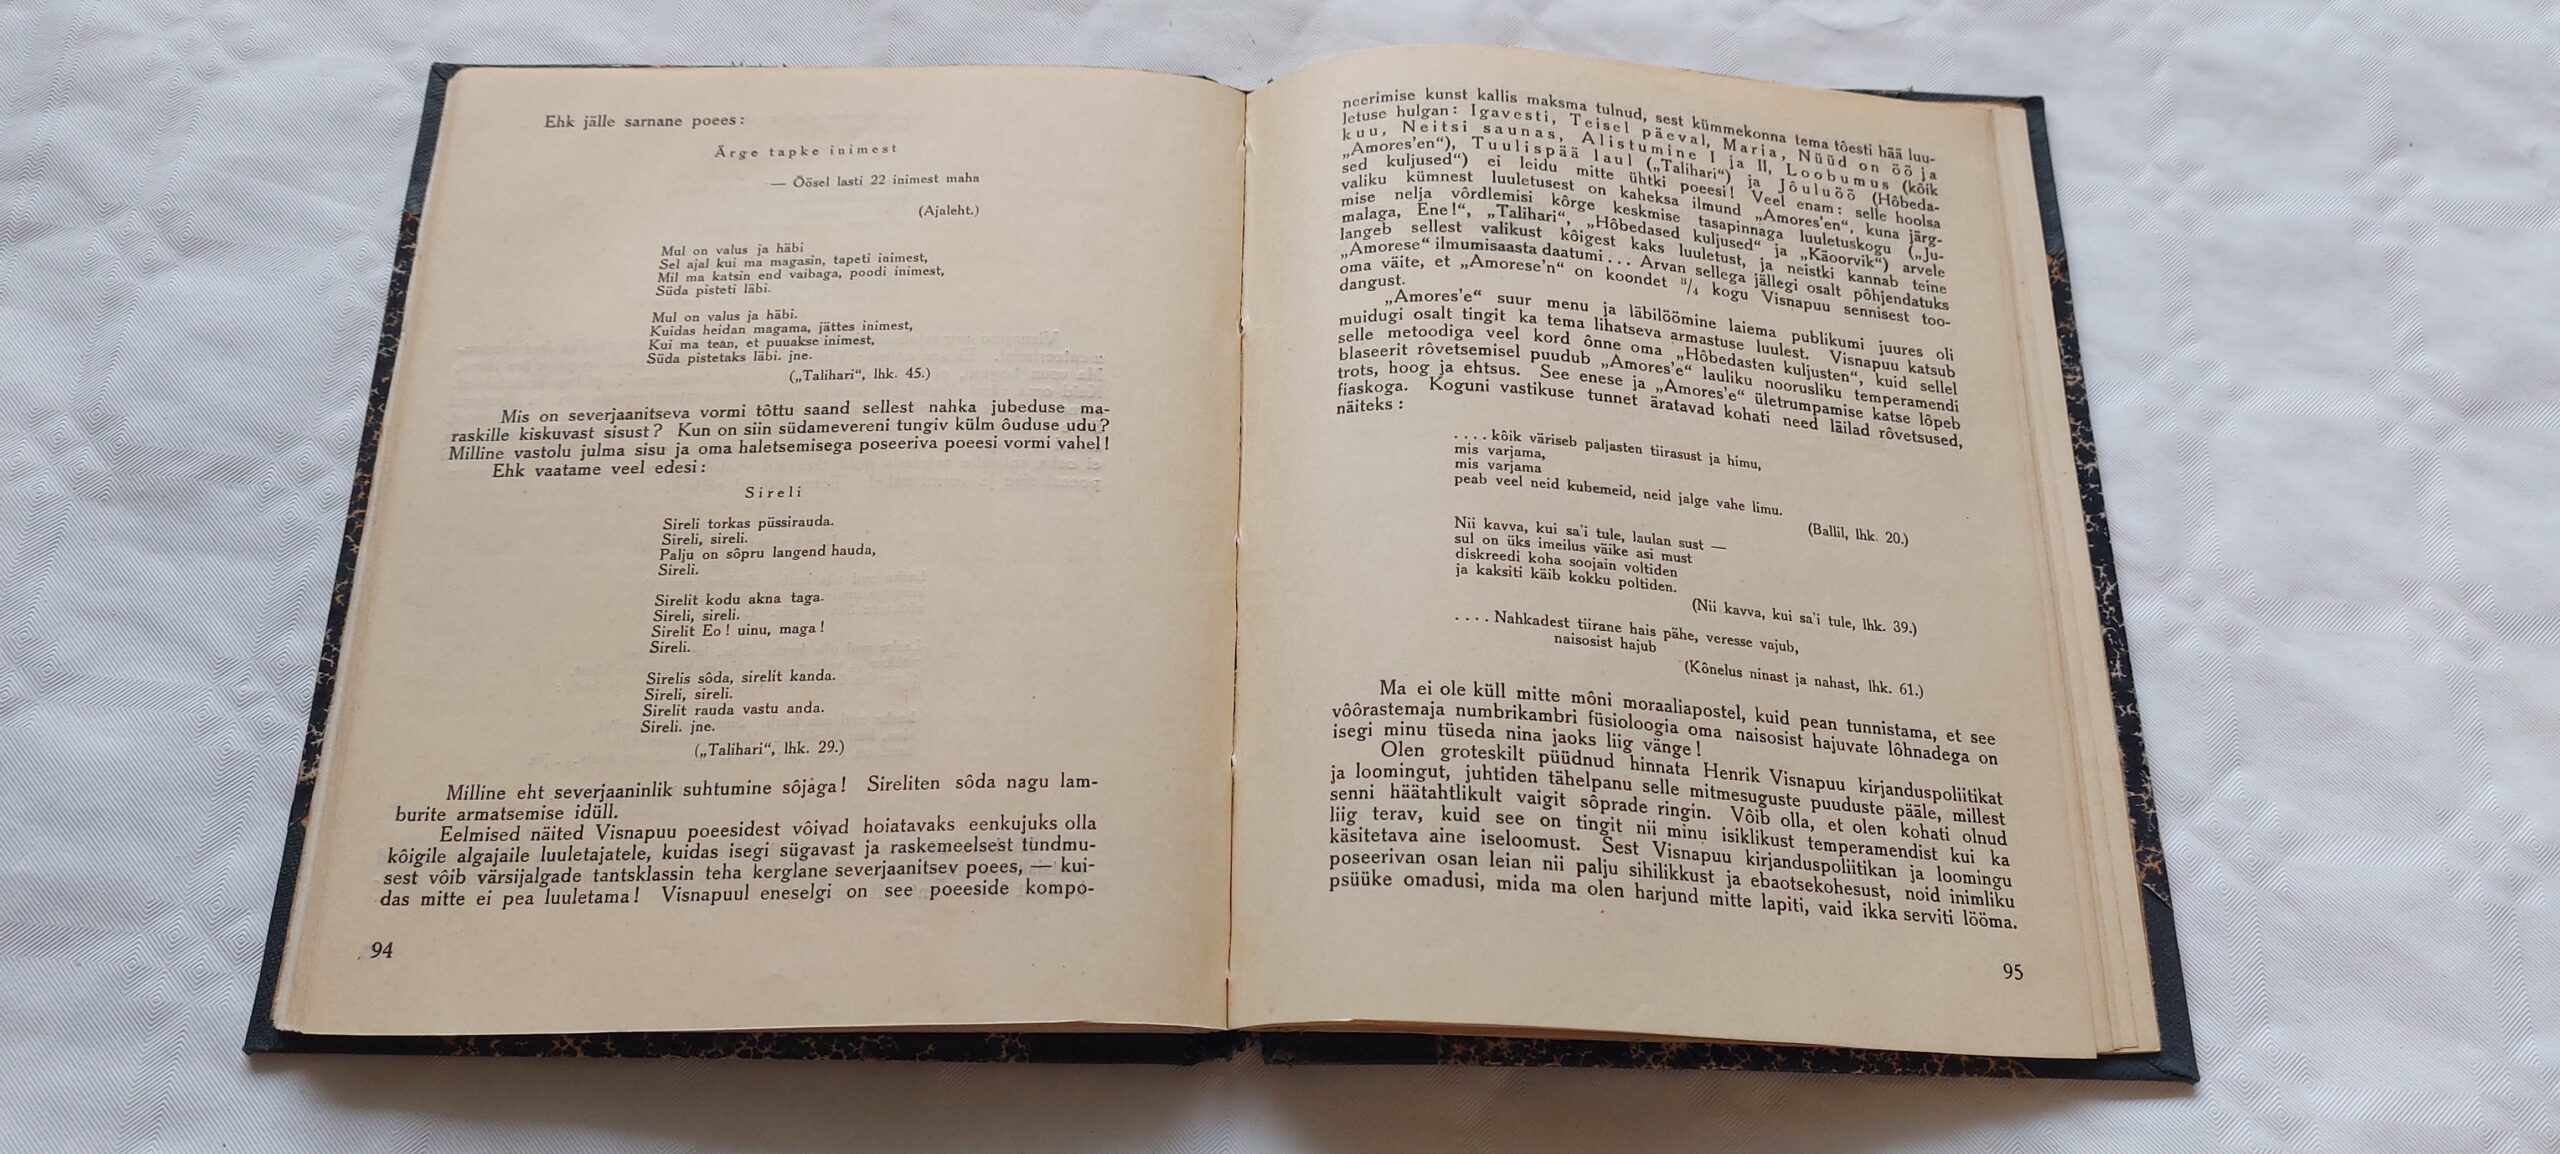 Ehk jälle sarnane poees:
Ärge tapke inimest
— Öösel lasti 22 inimest maha
(Ajaleht.)
Mul on valus ja häbi
Sel ajal kui ma magasin, tapeti inimest,
Mil ma katsin end vaibaga, poodi inimest,
Süda pisteti läbi.
Mul on valus ja häbi.
Kuidas heidan magama, jättes inimest,
Kui ma tean, et puuakse inimest,
Süda pistetaks läbi. jne.
(„Talihari“, lhk. 45.)
Mis on severjaanitseva vormi tôttu saand sellest nahka jubeduse ma-
raskille kiskuvast sisust? Kun on siin südamevereni tungiv külm ôuduse udu?
Milline vastolu julma sisu ja oma haletsemisega poseeriva poeesi vormi vahel!
Ehk vaatame veel edesi:
Sireli
Sireli torkas püssirauda.
Sireli, sireli.
Palju on sôpru langend hauda,
Sireli.
Sirelit kodu akna taga.
Sireli, sireli.
Sirelit Eo! uinu, maga!
Sireli.
Sirelis sôda, sirelit kanda.
Sireli, sireli.
Sirelit rauda vastu anda.
Sireli. jne.
(„Talihari“, lhk. 29.)
Milline eht severjaaninlik suhtumine sôjaga! Sireliten sôda nagu lam-
burite armatsemise idüll.
Eelmised näited Visnapuu poeesidest vôivad hoiatavaks eenkujuks olla
kôigile algajaile luuletajatele, kuidas isegi sügavast ja raskemeelsest tundmu-
sest vôib värsijalgade tantsklassin teha kerglane severjaanitsev poees, — kui-
das mitte ei pea luuletama! Visnapuul eneselgi on see poeeside kompo-
94
neerimise kunst kallis maksma tulnud, sest kümmekonna tema tôesti hää luu-
letuse hulgan: Igavesti, Teisel päeval, Maria, Nüüd on öö ja
kuu, Neitsi saunas, Alistumine I ja II, Loobumus (kôik
„Amores'en“), Tuulispää laul („Talihari“) ja Jôuluöö (Hôbeda-
sed kuljused“) ei leidu mitte ühtki poeesi! Veel enam: selle hoolsa
valiku kümnest luuletusest on kaheksa ilmund „Amores'en“, kuna järg-
mise nelja vôrdlemisi kôrge keskmise tasapinnaga luuletuskogu („Ju-
malaga, Ene!“, „Talihari“, „Hôbedased kuljused“ ja „Käoorvik“) arvele
langeb sellest valikust kôigest kaks luuletust, ja neistki kannab teine
„Amorese“ ilmumisaasta daatumi... Arvan sellega jällegi osalt pôhjendatuks
oma väite, et „Amorese'n“ on koondet 3/4 kogu Visnapuu sennisest too-
dangust.
„Amores'e“ suur menu ja läbilöömine laiema publikumi juures oli
muidugi osalt tingit ka tema lihatseva armastuse luulest. Visnapuu katsub
selle metoodiga veel kord ônne oma „Hôbedasten kuljusten“, kuid sellel
blaseerit rôvetsemisel puudub „Amores'e“ lauliku noorusliku temperamendi
trots, hoog ja ehtsus. See enese ja „Amores'e“ ületrumpamise katse lôpeb
fiaskoga. Koguni vastikuse tunnet äratavad kohati need läilad rôvetsused,
näiteks:
.... kôik väriseb paljasten tiirasust ja himu,
mis varjama,
mis varjama
peab veel neid kubemeid, neid jalge vahe limu.
(Ballil, lhk. 20.)
Nii kavva, kui sa'i tule, laulan sust —
sul on üks imeilus väike asi must
diskreedi koha soojain voltiden
ja kaksiti käib kokku poltiden.
(Nii kavva, kui sa'i tule, lhk. 39.)
.... Nahkadest tiirane hais pähe, veresse vajub,
naisosist hajub
(Kônelus ninast ja nahast, lhk. 61.)
Ma ei ole küll mitte môni moraaliapostel, kuid pean tunnistama, et see
vôôrastemaja numbrikambri füsioloogia oma naisosist hajuvate lôhnadega on
isegi minu tüseda nina jaoks liig vänge!
Olen groteskilt püüdnud hinnata Henrik Visnapuu kirjanduspoliitikat
ja loomingut, juhtiden tähelpanu selle mitmesuguste puuduste pääle, millest
senni häätahtlikult vaigit sôprade ringin. Vôib olla, et olen kohati olnud
liig terav, kuid see on tingit nii minu isiklikust temperamendist kui ka
käsitetava aine iseloomust. Sest Visnapuu kirjanduspoliitikan ja loomingu
poseerivan osan leian nii palju sihilikkust ja ebaotsekohesust, noid inimliku
psüüke omadusi, mida ma olen harjund mitte lapiti, vaid ikka serviti lööma.
95